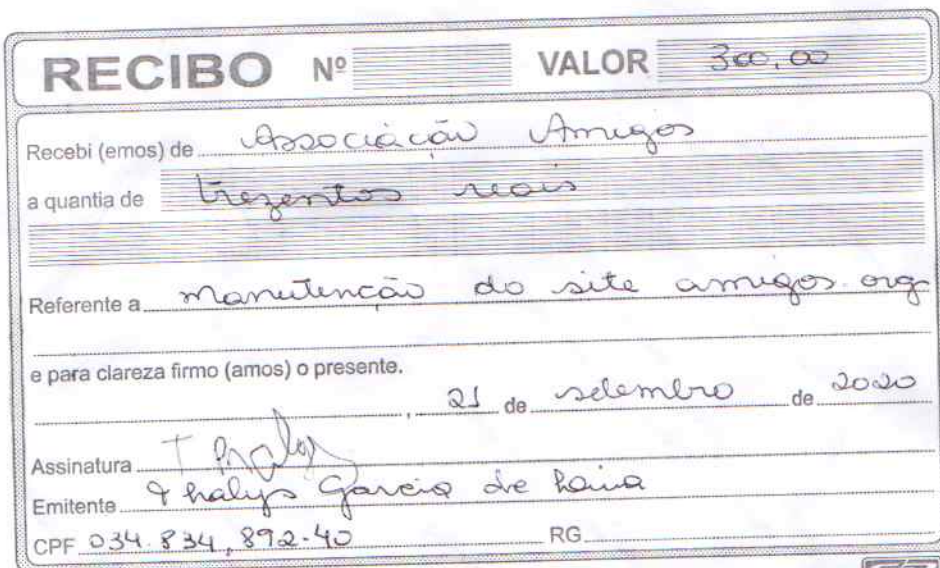 RECIBO Nº VALOR 300,00
Recebi (emos) de Associação Amigos
a quantia de trezentos reais
Referente a manutenção do site amigos.org
e para clareza firmo (amos) o presente.
, 21 de setembro de 2020
Assinatura
Emitente Thalys Garcia de
CPF 034.834.892-40 RG